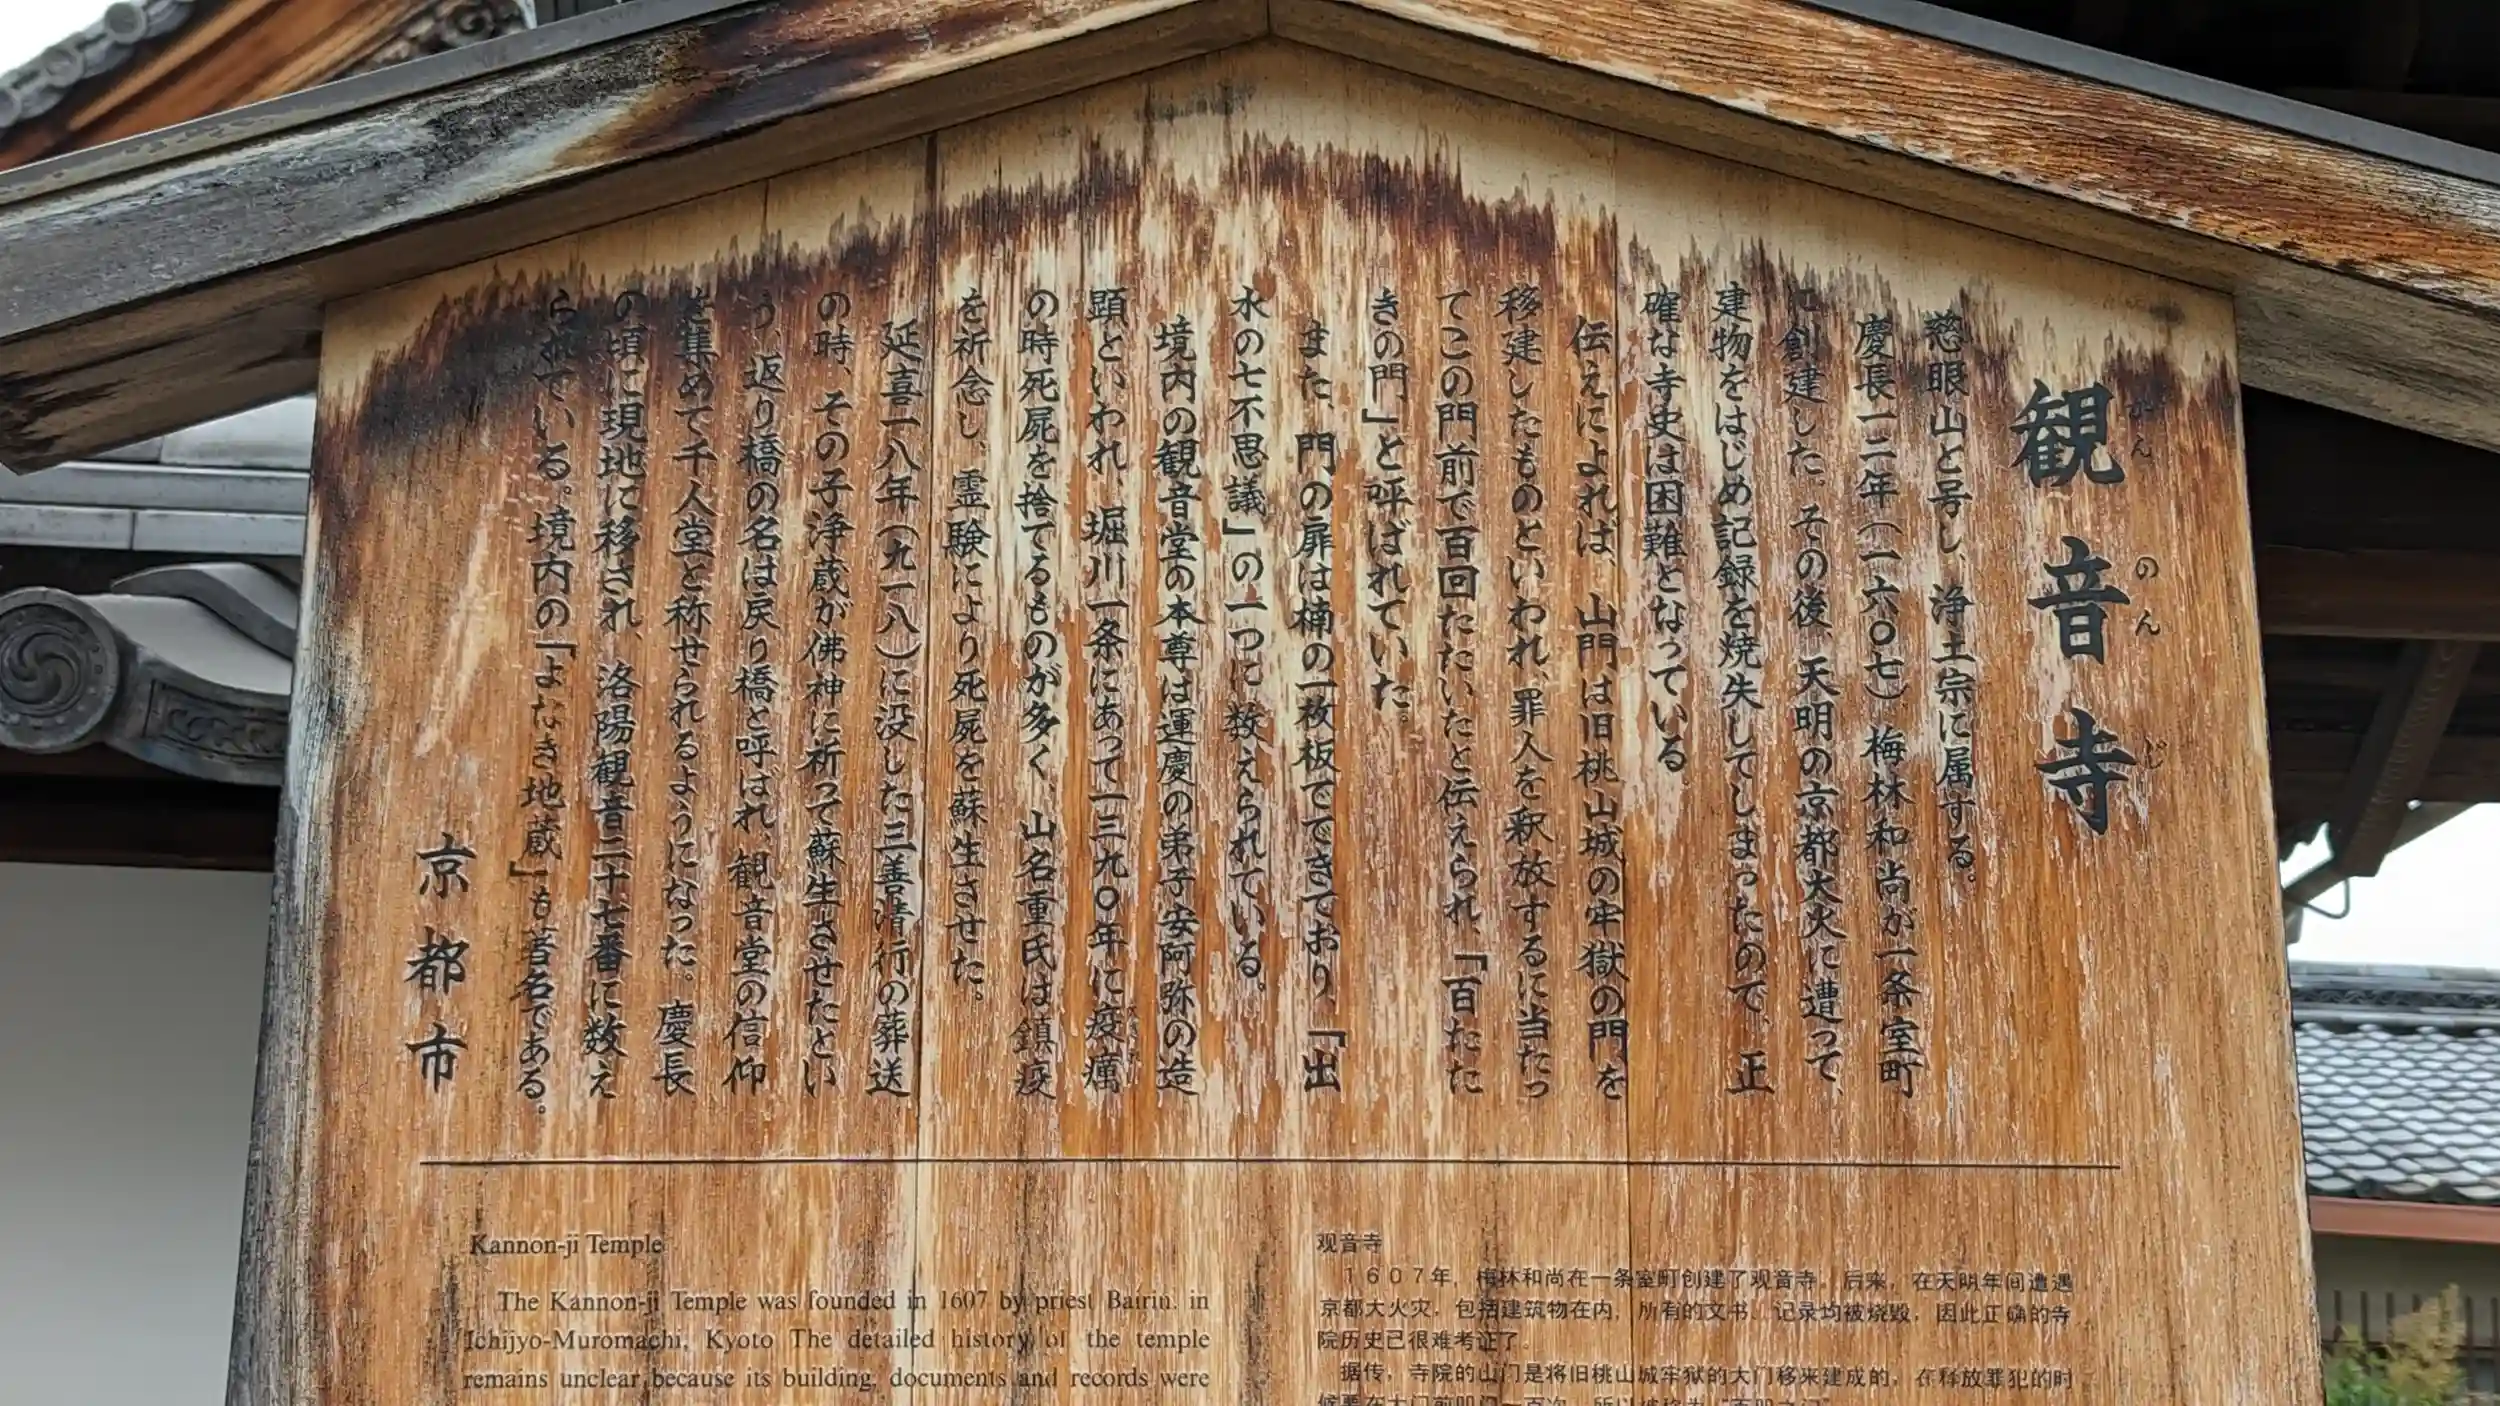 観音寺
かんのんじ
慈眼山と号し、浄土宗に属する。
慶長一二年(一六〇七)梅林和尚が一条室町
に創建した。その後、天明の京都大火に遭って、
建物をはじめ記録を焼失してしまったので、正
確な寺史は困難となっている。
伝えによれば、山門は旧桃山城の牢獄の門を
移建したものといわれ、罪人を釈放するに当たっ
てこの門前で百回たたいたと伝えられ、「百たた
きの門」と呼ばれていた。
また、門の扉は楠の一枚板でできており、「出
水の七不思議」の一つに数えられている。
境内の観音堂の本尊は運慶の弟子安阿弥の造
顕といわれ、堀川一条にあって一三九〇年に疫癘
の時死屍を捨てるものが多く、山名重氏は鎮疫
を祈念し、霊験により死屍を蘇生させた。
延喜一八年(九一八)に没した三善清行の葬送
の時、その子浄蔵が佛神に祈って蘇生させたとい
う、返り橋の名は戻り橋と呼ばれ、観音堂の信仰
を集めて千人堂と称せられるようになった。慶長
の頃に現地に移され、洛陽観音二十七番に数え
られている。境内の「よなき地蔵」も著名である。
京都市
Kannon-ji Temple
The Kannon-ji Temple was founded in 1607 by priest Bairin. in
Ichijyo-Muromachi, Kyoto The detailed history of the temple
remains unclear because its building, documents and records were
观音寺
1607年，梅林和尚在一条室町创建了观音寺。后来，在天明年间遭遇
京都大火灾，包括建筑物在内，所有的文书、记录均被烧毁，因此正确的寺
院历史已很难考证了。
据传，寺院的山门是将旧桃山城牢狱的大门移来建成的，在释放罪犯的时